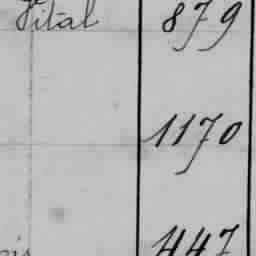 Vital 879
1170
447